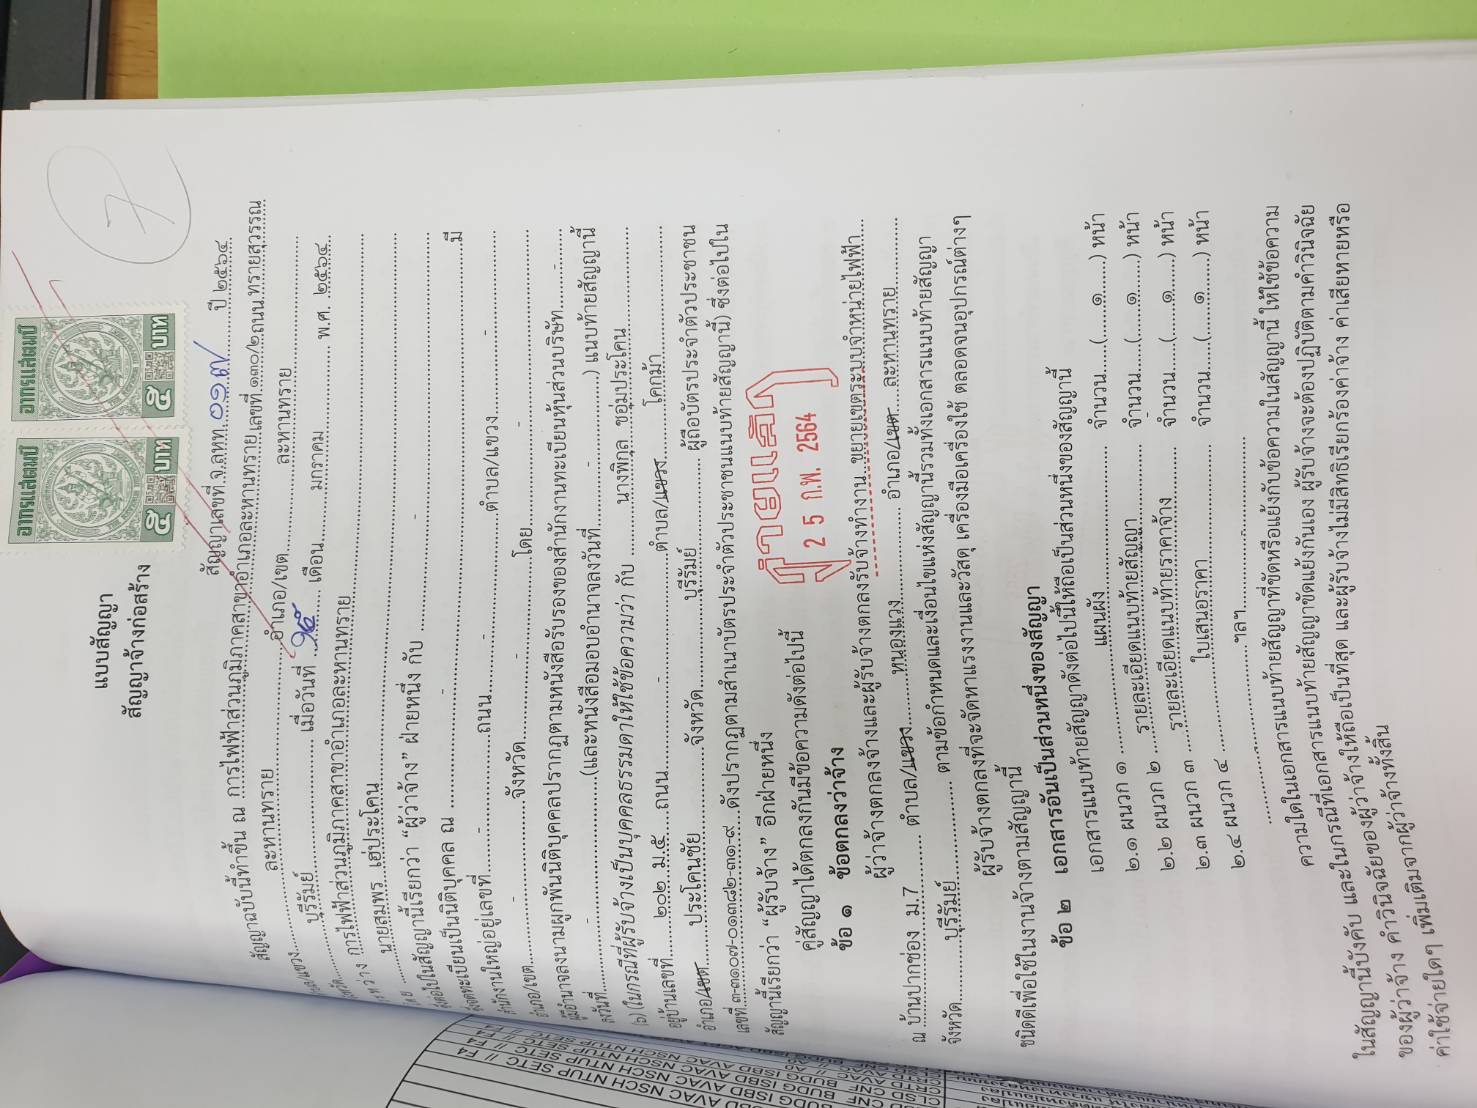 แบบสัญญา
สัญญาจ้างก่อสร้าง
อากรแสตมป์
๕ บาท
อากรแสตมป์
๕ บาท
7
สัญญาเลขที่.จ.ลหท. ๐๑๗ ปี ๒๕๖๔
สัญญาฉบับนี้ทำขึ้น ณ การไฟฟ้าส่วนภูมิภาคสาขาอำเภอละหานทราย เลขที่.๑๓๐/๒ถนน.ทรายสุวรรณ
ละหานทราย อำเภอ/เขต ละหานทราย
บุรีรัมย์ เมื่อวันที่ ๑๕ เดือน มกราคม พ.ศ. ๒๕๖๔
หว่าง การไฟฟ้าส่วนภูมิภาคสาขาอำเภอละหานทราย
นายสมพร เฮ่ประโคน
ต่อไปในสัญญานี้เรียกว่า “ผู้ว่าจ้าง” ฝ่ายหนึ่ง กับ -
จดทะเบียนเป็นนิติบุคคล ณ - มี
สำนักงานใหญ่อยู่เลขที่ - ถนน - ตำบล/แขวง -
อำเภอ/เขต - จังหวัด - โดย -
ผู้มีอำนาจลงนามผูกพันนิติบุคคลปรากฏตามหนังสือรับรองของสำนักงานทะเบียนหุ้นส่วนบริษัท -
ลงวันที่ - (และหนังสือมอบอำนาจลงวันที่ - ) แนบท้ายสัญญานี้
(๖) (ในกรณีที่ผู้รับจ้างเป็นบุคคลธรรมดาให้ใช้ข้อความว่า กับ นางพิกุล ชอุ่มประโคน
อยู่บ้านเลขที่ ๒๐๒ ม.๕ ถนน - ตำบล/แขวง โคกม้า
อำเภอ/เขต ประโคนชัย จังหวัด บุรีรัมย์ ผู้ถือบัตรประจำตัวประชาชน
เลขที่.๓-๓๑๐๗-๐๑๓๘๒-๓๑-๙ ดังปรากฏตามสำเนาบัตรประจำตัวประชาชนแนบท้ายสัญญานี้) ซึ่งต่อไปใน
สัญญานี้เรียกว่า “ผู้รับจ้าง” อีกฝ่ายหนึ่ง
จ่ายแล้ว
25 ก.พ. 2564
คู่สัญญาได้ตกลงกันมีข้อความดังต่อไปนี้
ข้อ ๑ ข้อตกลงว่าจ้าง
ผู้ว่าจ้างตกลงจ้างและผู้รับจ้างตกลงรับจ้างทำงาน ขยายเขตระบบจำหน่ายไฟฟ้า
ณ บ้านปากช่อง ม.7 ตำบล/แขวง หนองแวง อำเภอ/เขต ละหานทราย
จังหวัด บุรีรัมย์ ตามข้อกำหนดและเงื่อนไขแห่งสัญญานี้รวมทั้งเอกสารแนบท้ายสัญญา
ผู้รับจ้างตกลงที่จะจัดหาแรงงานและวัสดุ เครื่องมือเครื่องใช้ ตลอดจนอุปกรณ์ต่างๆ
ชนิดดีเพื่อใช้ในงานจ้างตามสัญญานี้
ข้อ ๒ เอกสารอันเป็นส่วนหนึ่งของสัญญา
เอกสารแนบท้ายสัญญาดังต่อไปนี้ให้ถือเป็นส่วนหนึ่งของสัญญานี้
๒.๑ ผนวก ๑ แผนผัง จำนวน (๑) หน้า
๒.๒ ผนวก ๒ รายละเอียดแนบท้ายสัญญา จำนวน (๑) หน้า
๒.๓ ผนวก ๓ รายละเอียดแนบท้ายราคาจ้าง จำนวน (๑) หน้า
๒.๔ ผนวก ๔ ใบเสนอราคา จำนวน (๑) หน้า
ฯลฯ
ความใดในเอกสารแนบท้ายสัญญาที่ขัดหรือแย้งกับข้อความในสัญญานี้ ให้ใช้ข้อความ
ในสัญญานี้บังคับ และในกรณีที่เอกสารแนบท้ายสัญญาขัดแย้งกันเอง ผู้รับจ้างจะต้องปฏิบัติตามคำวินิจฉัย
ของผู้ว่าจ้าง คำวินิจฉัยของผู้ว่าจ้างให้ถือเป็นที่สุด และผู้รับจ้างไม่มีสิทธิเรียกร้องค่าจ้าง ค่าเสียหายหรือ
ค่าใช้จ่ายใดๆ เพิ่มเติมจากผู้ว่าจ้างทั้งสิ้น